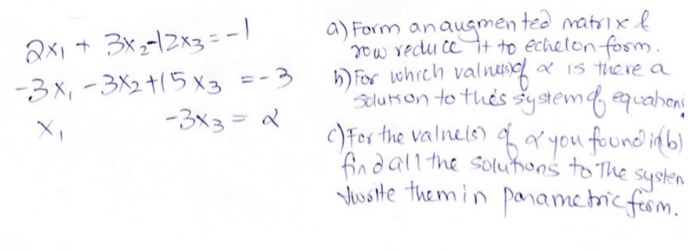 2x₁ + 3x₂-12x₃ = -1
-3x₁ - 3x₂ + 15x₃ = -3
x₁ -3x₃ = α
a) Form an augmented matrix &
row reduce it to echelon form.
b) For which value(s) of α is there a
solution to this system of equations
c) For the value(s) of α you found in (b)
find all the solutions to the system
& write them in parametric form.